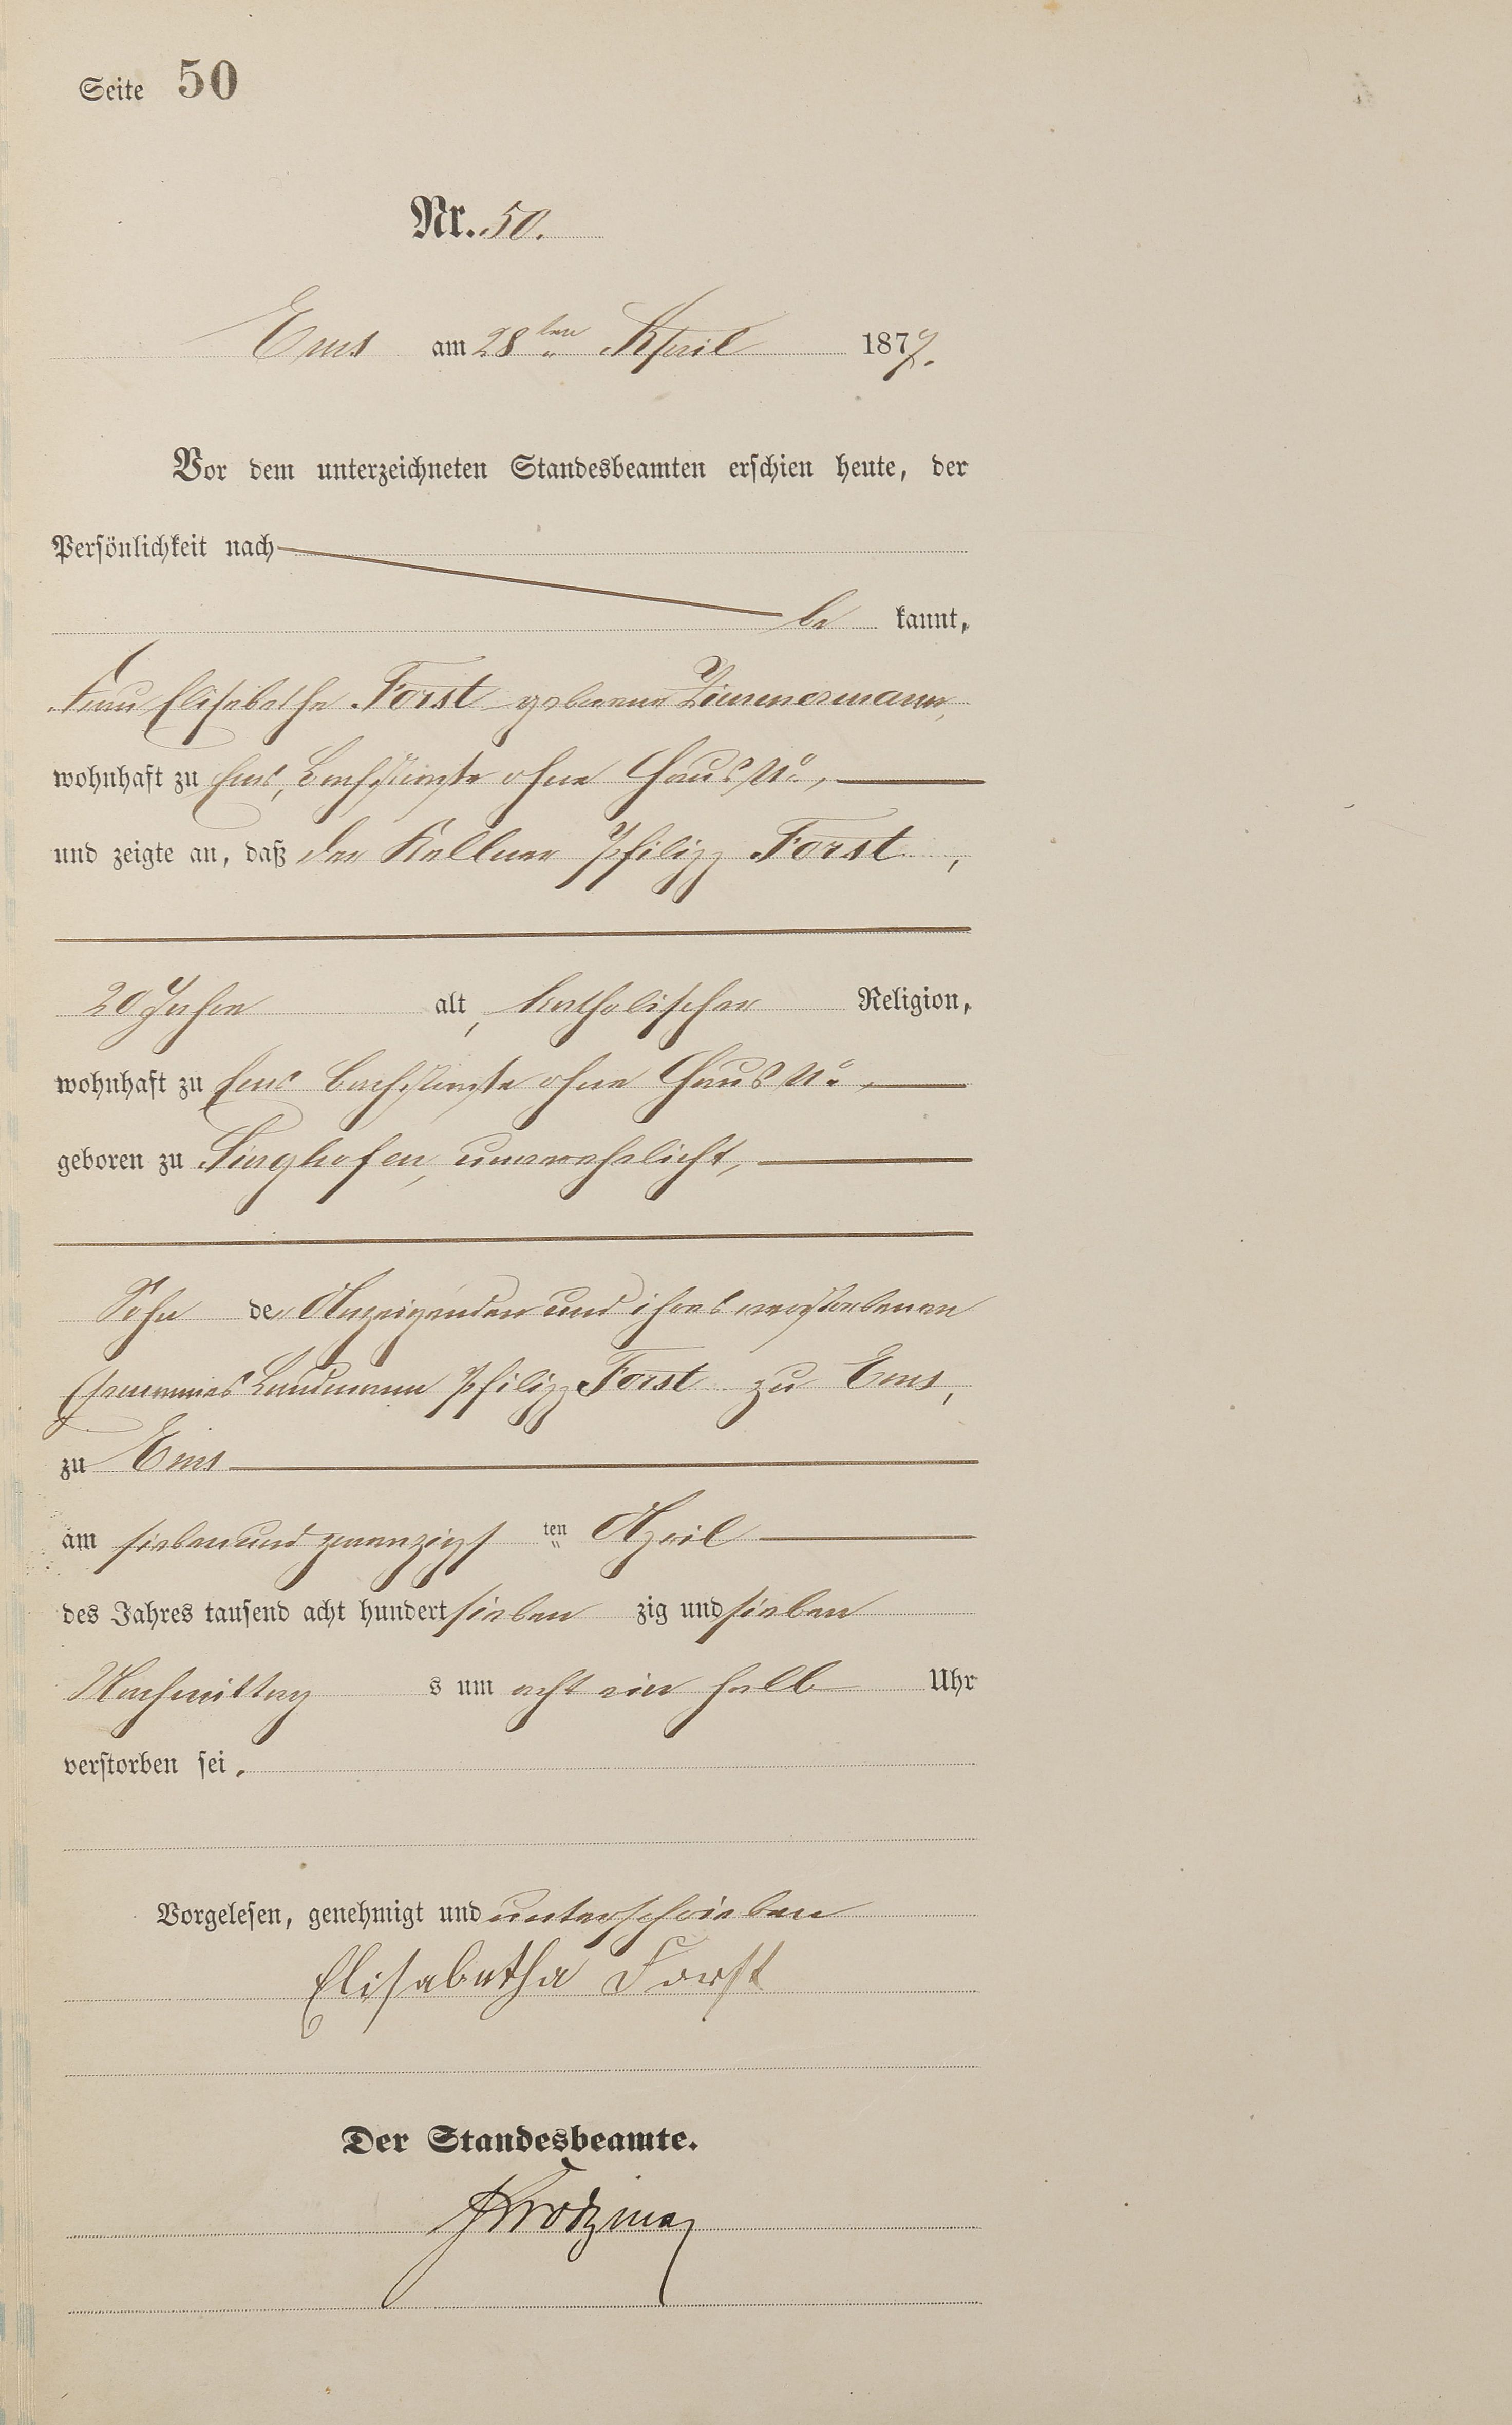 Seite 50
Nr. 50.
Ems am 28ten April 1877.
Vor dem unterzeichneten Standesbeamten erschien heute, der
Persönlichkeit nach
be kannt,
Frau Elisabetha Forst geborene Zimmermann,
wohnhaft zu Ems, Bachstraße ohne Haus No.,
und zeigte an, daß der Kellner Philipp Forst,
20 Jahre alt, katholischer Religion,
wohnhaft zu Ems Bachstraße ohne Haus No.,
geboren zu Singhofen, unverehelicht,
Sohn der Anzeigenden und ihres verstorbenen
Ehemannes Landmann Philipp Forst zu Ems,
zu Ems
am siebenundzwanzigsten April
des Jahres tausend acht hundert sieben zig und sieben
Nachmittag s um acht ein halb Uhr
verstorben sei.
Vorgelesen, genehmigt und unterschrieben
Elisabetha Forst
Der Standesbeamte.